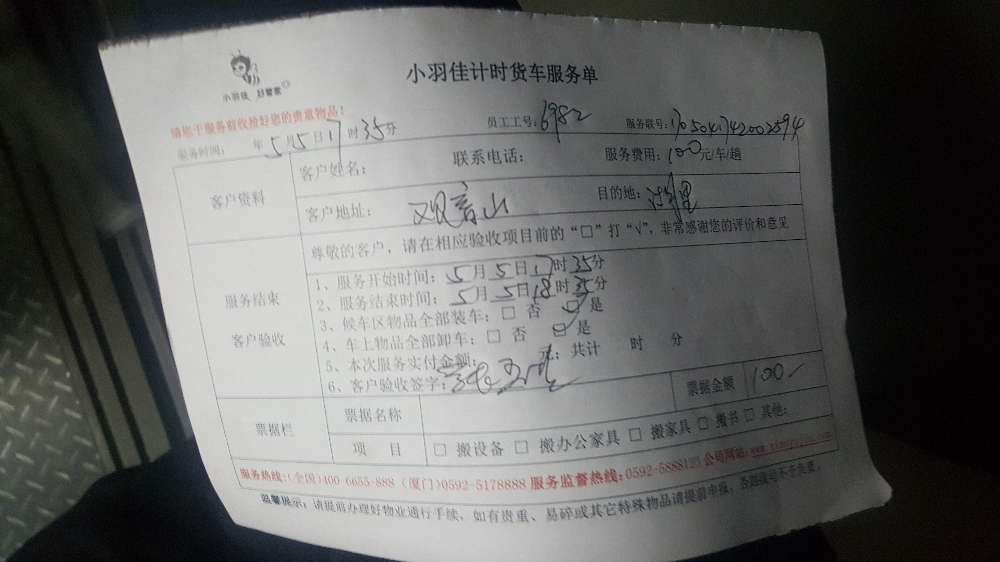 小羽佳计时货车服务单
小羽佳 好管家
请您于服务前收拾好您的贵重物品!
服务时间: 年5月5日17时35分 员工工号:6982 服务联号:
客户资料
客户姓名: 联系电话: 服务费用:100元/车/趟
客户地址: 观音山 目的地:
服务结束
客户验收
尊敬的客户,请在相应验收项目前的“□”打“√”,非常感谢您的评价和意见
1、服务开始时间:5月5日17时35分
2、服务结束时间:5月5日18时35分
3、候车区物品全部装车:□ 否 ☑ 是
4、车上物品全部卸车:□ 否 ☑ 是
5、本次服务实付金额: 元;共计 时 分
6、客户验收签字:
票据栏
票据名称 票据金额 100
项 目 □ 搬设备 □ 搬办公家具 □ 搬家具 □ 搬书 □ 其他:
服务热线:(全国)400-6655-888 (厦门)0592-5178888 服务监督热线:0592-5888123 公司网站:
温馨提示:请提前办理好物业通行手续,如有贵重、易碎或其它特殊物品请提前申报,否则损坏不予负责。